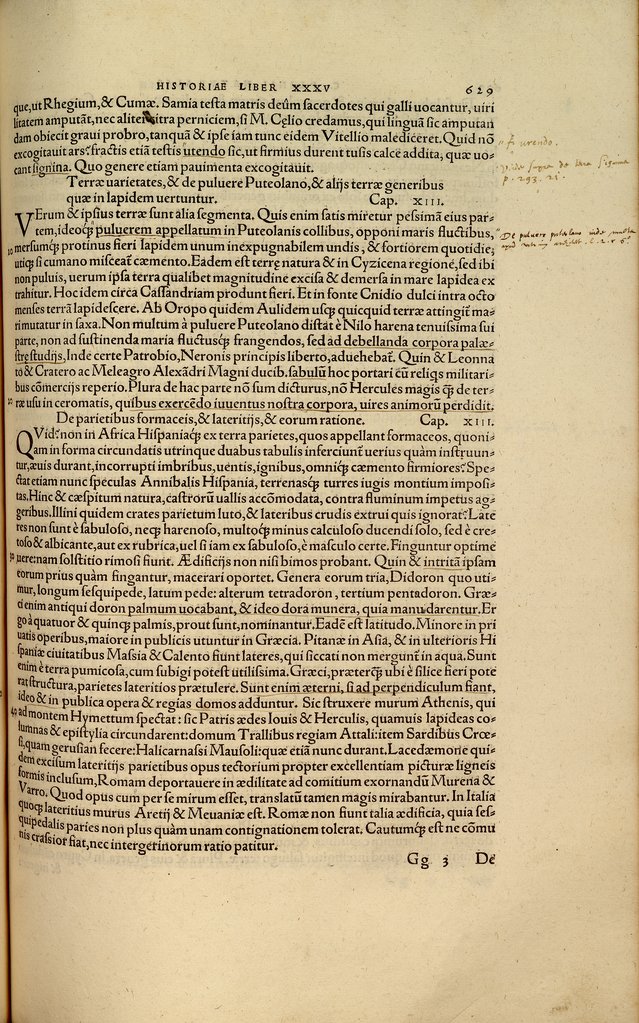 HISTORIAE LIBER XXXV 629
que, ut Rhegium, & Cumæ. Samia testa matris deûm sacerdotes qui galli uocantur, uiri
litatem amputãt, nec aliter citra perniciem, si M. Cęlio credamus, qui linguã sic amputan
dam obiecit graui probro, tanquã & ipse iam tunc eidem Vitellio malediceret. Quid nõ
excogitauit ars? fractis etiã testis utendo sic, ut firmius durent tusis calce addita, quæ uo-
cant signina. Quo genere etiam pauimenta excogitauit.
Terræ uarietates, & de puluere Puteolano, & alijs terræ generibus
quæ in lapidem uertuntur. Cap. XIII.
VErum & ipsius terræ sunt alia segmenta. Quis enim satis miretur pessimã eius par-
tem, ideoq̃ puluerem appellatum in Puteolanis collibus, opponi maris fluctibus,
mersumq̃ protinus fieri lapidem unum inexpugnabilem undis, & fortiorem quotidie,
utiq̃ si cumano misceat cæmento. Eadem est terrę natura & in Cyzicena regione, sed ibi
non puluis, uerum ipsa terra qualibet magnitudine excisa & demersa in mare lapidea ex
trahitur. Hoc idem circa Cassandriam produnt fieri. Et in fonte Cnidio dulci intra octo
menses terrã lapidescere. Ab Oropo quidem Aulidem usq̃ quicquid terræ attingit ma-
ri mutatur in saxa. Non multum à puluere Puteolano distat è Nilo harena tenuissima sui
parte, non ad sustinenda maria fluctusq̃ frangendos, sed ad debellanda corpora palæ-
strę studijs, Inde certe Patrobio, Neronis principis liberto, aduehebat. Quin & Leonna
to & Cratero ac Meleagro Alexãdri Magni ducib. sabulũ hoc portari cũ reliqs militari-
bus cõmercijs reperio. Plura de hac parte nõ sum dicturus, nõ Hercules magis q̃ de ter-
ræ usu in ceromatis, quibus exercẽdo iuuentus nostra corpora, uires animorũ perdidit.
De parietibus formaceis, & lateritijs, & eorum ratione. Cap. XIII.
QVid? non in Africa Hispaniaq̃ ex terra parietes, quos appellant formaceos, quoni-
am in forma circundatis utrinque duabus tabulis inferciunt uerius quàm instruun-
tur, æuis durant, incorrupti imbribus, uentis, ignibus, omniq̃ cæmento firmiores? Spe-
ctat etiam nunc speculas Annibalis Hispania, terrenasq̃ turres iugis montium imposi-
tas. Hinc & cæspitum natura, castrorũ uallis accõmodata, contra fluminum impetus ag-
geribus. Illini quidem crates parietum luto, & lateribus crudis extrui quis ignorat? Late
res non sunt è sabuloso, neq̃ harenoso, multoq̃ minus calculoso ducendi solo, sed è cre-
toso & albicante, aut ex rubrica, uel si iam ex sabuloso, è masculo certe. Finguntur optime
uere: nam solstitio rimosi fiunt. Ædificijs non nisi bimos probant. Quin & intritã ipsam
eorum prius quàm fingantur, macerari oportet. Genera eorum tria, Didoron quo uti-
mur, longum sesquipede, latum pede: alterum tetradoron, tertium pentadoron. Græ-
ci enim antiqui doron palmum uocabant, & ideo dora munera, quia manu darentur. Er
go à quatuor & quinq̃ palmis, prout sunt, nominantur. Eadẽ est latitudo. Minore in pri
uatis operibus, maiore in publicis utuntur in Græcia. Pitanæ in Asia, & in ulterioris Hi
spaniæ ciuitatibus Massia & Calento fiunt lateres, qui siccati non mergunt in aqua. Sunt
enim è terra pumicosa, cum subigi potest utilissima. Græci, præterq̃ ubi è silice fieri pote
rat structura, parietes lateritios prætulere. Sunt enim æterni, si ad perpendiculum fiant,
ideo & in publica opera & regias domos adduntur. Sic struxere murum Athenis, qui
ad montem Hymettum spectat: sic Patris ædes Iouis & Herculis, quamuis lapideas co-
lumnas & epistylia circundarent: domum Trallibus regiam Attali: item Sardibus Crœ-
si, quam gerusian fecere: Halicarnassi Mausoli: quæ etiã nunc durant. Lacedæmone qui-
dem excisum lateritijs parietibus opus tectorium propter excellentiam picturæ ligneis
formis inclusum, Romam deportauere in ædilitate ad comitium exornandũ Murena &
Varro. Quod opus cum per se mirum esset, translatũ tamen magis mirabantur. In Italia
quoq̃ lateritius murus Aretij & Meuaniæ est. Romæ non fiunt talia ædificia, quia ses-
quipedalis paries non plus quàm unam contignationem tolerat. Cautumq̃ est ne cõmu
nis crassior fiat, nec intergerinorum ratio patitur.
Gg 3 De
urendo.
p. 293. 21.
De puluere puteolano